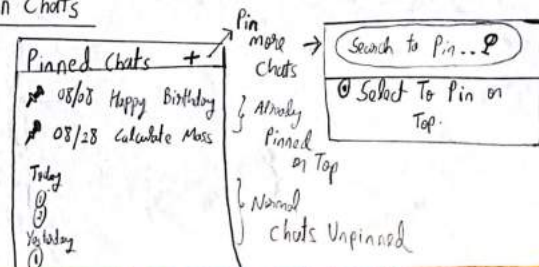 n Chats
Pinned Chats +
08/08 Happy Birthday
08/28 Calculate Mass
Today
1
2
Yesterday
1
Pin
more
Chats
Already
Pinned
on Top
Normal
Chats Unpinned
Search to Pin..
Select To Pin on
Top.